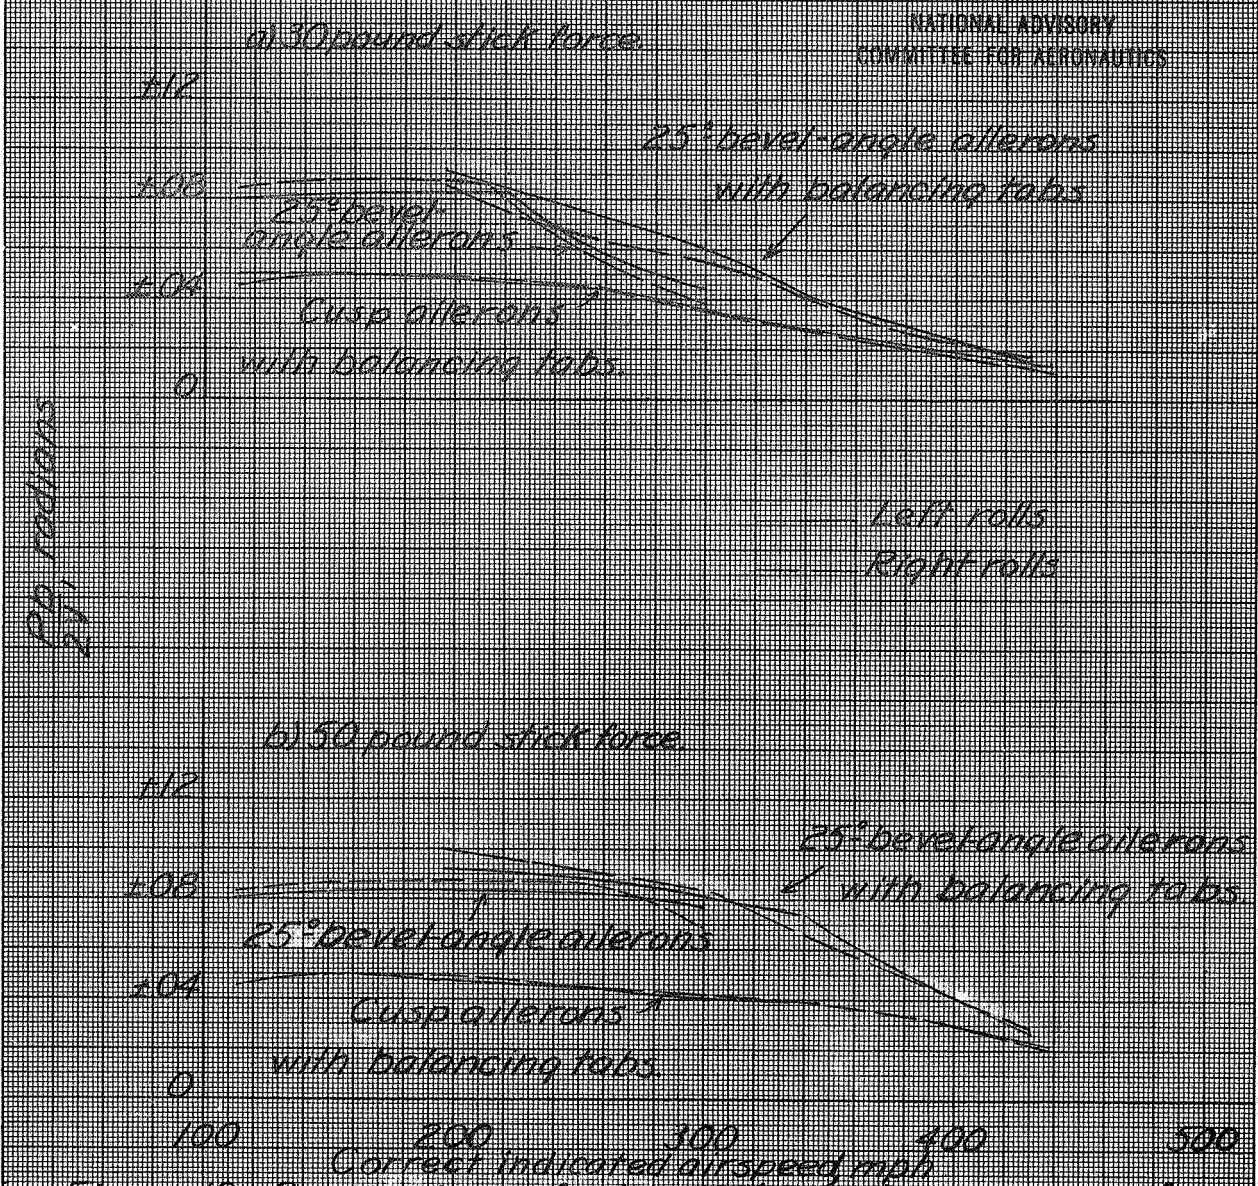 a) 30 pound stick force.
NATIONAL ADVISORY
COMMITTEE FOR AERONAUTICS
±.12
25° bevel-angle ailerons
with balancing tabs
±.08
25° bevel-
angle ailerons
±.04
Cusp ailerons
with balancing tabs.
0
pb/2V, radians
Left rolls
Right rolls
b) 50 pound stick force.
±.12
25° bevel-angle ailerons
with balancing tabs.
±.08
25° bevel-angle ailerons
±.04
Cusp ailerons
with balancing tabs.
0
100 200 300 400 500
Correct indicated airspeed, mph